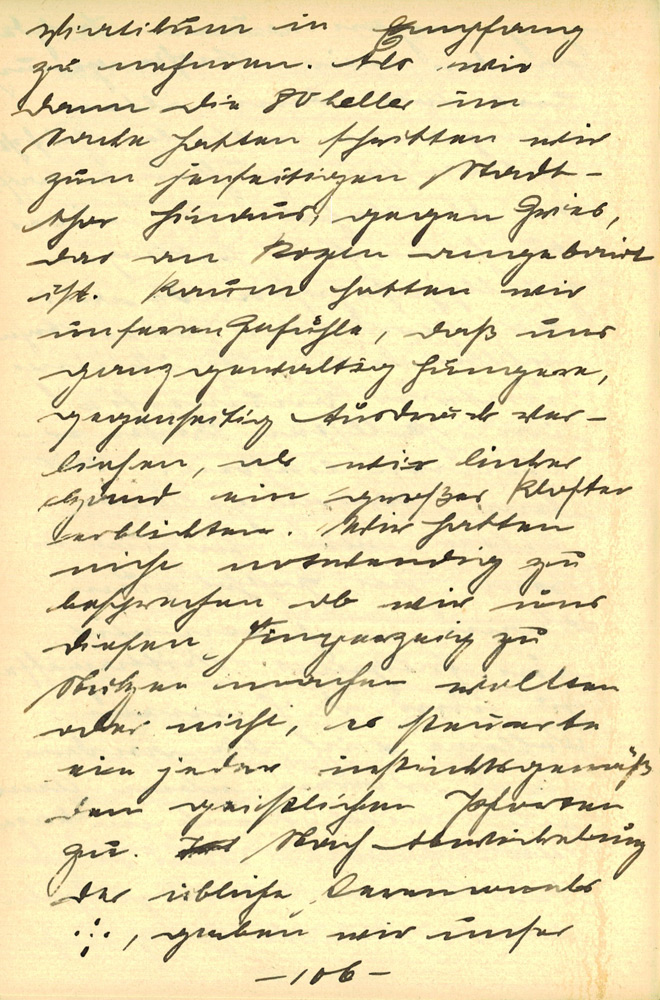 Viatikum in Empfang
zu nehmen. Als wir
dann die 80 heller im
Sacke hatten schritten wir
zum jenseitigen Stadt-
thor hinaus, gegen Gries,
das an Bozen angebaut
ist. Kaum hatten wir
unseren Gefühle, daß uns
ganz gewaltig hungere,
gegenseitig Ausdruck ver-
liehen, als wir linker
Hand ein großes Kloster
erblickten. Wir hatten
nicht notwendig zu
besprechen ob wir uns
diesen Fingerzeig zu
Nutzen machen wollten
oder nicht, es steuerte
ein jeder instinktsgemäß
den geistlichen Pforten
zu. Nach Abwickelung
des übliche Ceremoniels
, gaben wir unser
-106-